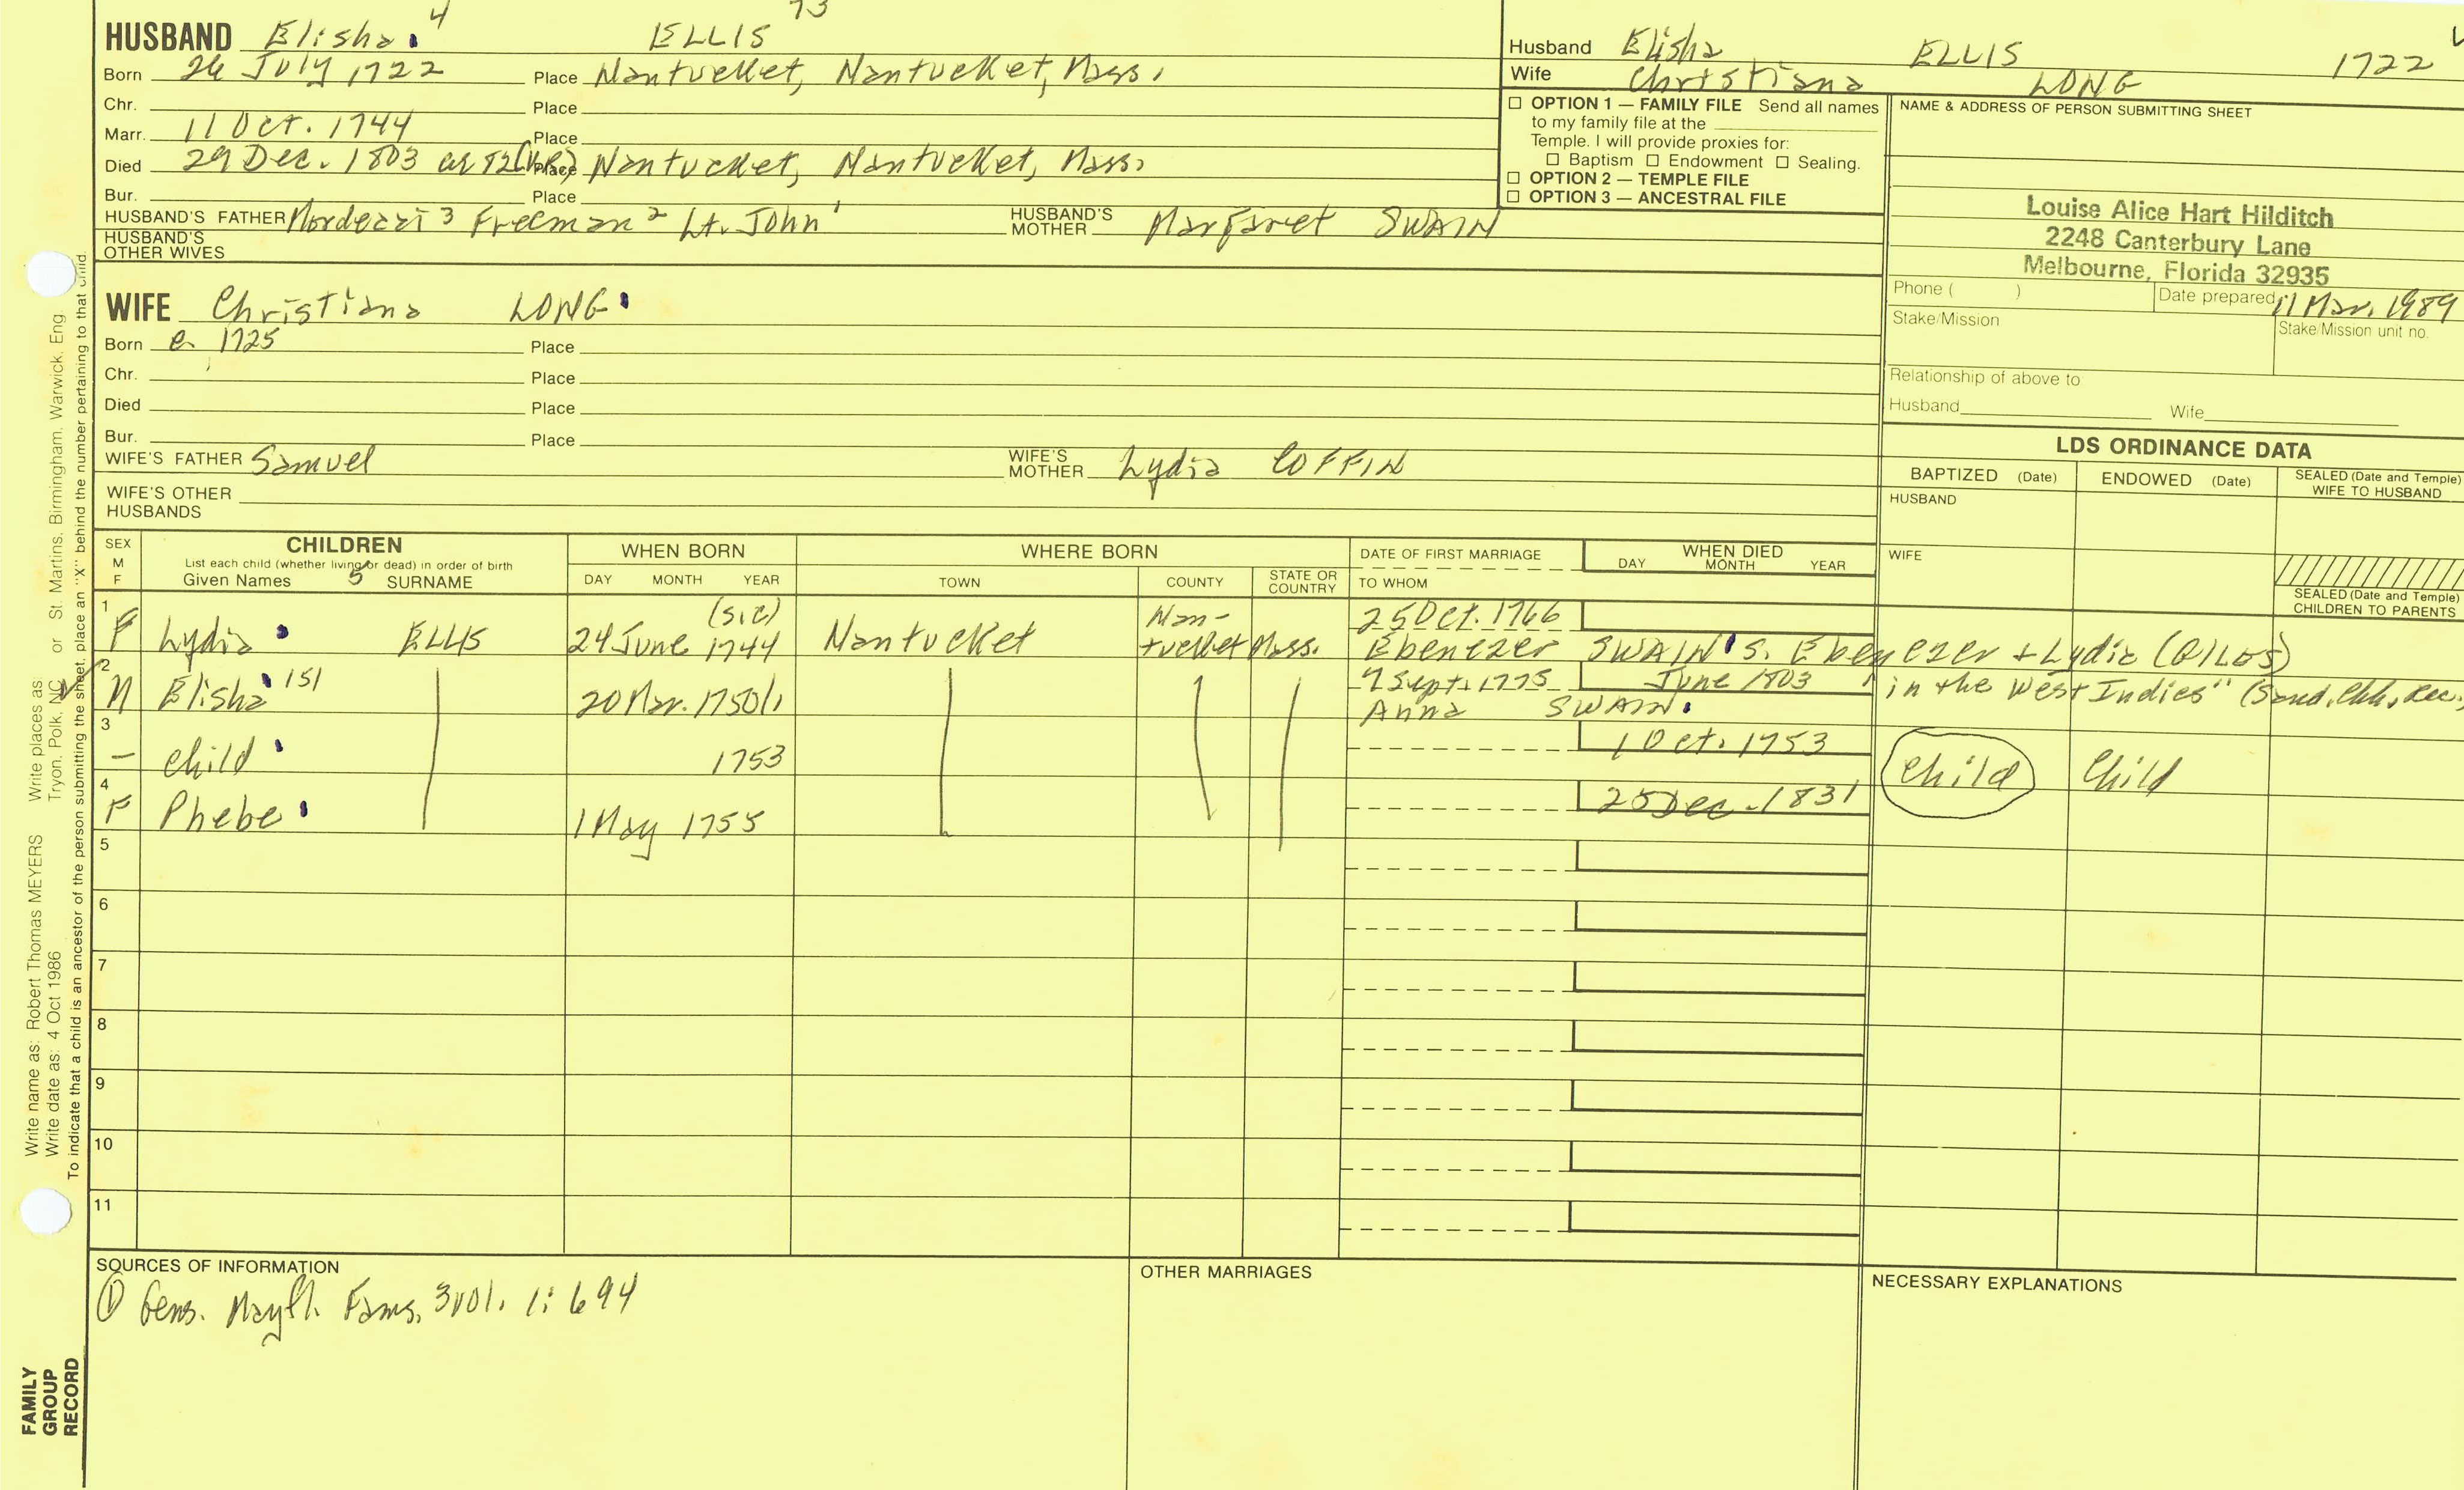 4 73
HUSBAND Elisha ELLIS
Born 26 July 1722 Place Nantucket, Nantucket, Mass.
Chr. Place
Marr. 11 Oct. 1744 Place
Died 29 Dec. 1803 ae 82 (VR) Place Nantucket, Nantucket, Mass.
Bur. Place
HUSBAND'S FATHER Mordecai 3 Freeman 2 Lt. John 1 HUSBAND'S MOTHER Margaret SWAIN
HUSBAND'S OTHER WIVES
Husband Elisha ELLIS 1722
Wife Christiana LONG
☐ OPTION 1 — FAMILY FILE Send all names
to my family file at the
Temple. I will provide proxies for:
☐ Baptism ☐ Endowment ☐ Sealing.
☐ OPTION 2 — TEMPLE FILE
☐ OPTION 3 — ANCESTRAL FILE
NAME & ADDRESS OF PERSON SUBMITTING SHEET
Louise Alice Hart Hilditch
2248 Canterbury Lane
Melbourne, Florida 32935
Phone ( ) Date prepared 11 Mar. 1989
Stake/Mission Stake/Mission unit no.
Relationship of above to
Husband Wife
WIFE Christiana LONG
Born c. 1725 Place
Chr. Place
Died Place
Bur. Place
WIFE'S FATHER Samuel WIFE'S MOTHER Lydia COFFIN
WIFE'S OTHER HUSBANDS
LDS ORDINANCE DATA
BAPTIZED (Date) ENDOWED (Date) SEALED (Date and Temple) WIFE TO HUSBAND
HUSBAND
WIFE
SEALED (Date and Temple) CHILDREN TO PARENTS
SEX M F
CHILDREN
List each child (whether living or dead) in order of birth
Given Names 5 SURNAME
WHEN BORN
DAY MONTH YEAR
WHERE BORN
TOWN COUNTY STATE OR COUNTRY
DATE OF FIRST MARRIAGE
TO WHOM
WHEN DIED
DAY MONTH YEAR
1 (sic) Nan- 25 Oct. 1766
F Lydia ELLIS 24 June 1744 Nantucket tucket Mass. Ebenezer SWAIN s. Ebenezer + Lydia
2 7 Sept. 1775 June 1803 in the West Indies"
M Elisha 151 20 Mar. 1750/1 Anna SWAIN
3 1 Oct. 1753
— child 1753 Child Child
4 25 Dec. 1831
F Phebe 1 May 1755
5
6
7
8
9
10
11
SOURCES OF INFORMATION
① Gens. Mayfl. Fams. 3vol. 1: 694
OTHER MARRIAGES
NECESSARY EXPLANATIONS
Write name as: Robert Thomas MEYERS Write places as: Tryon, Polk, NC or St. Martins, Birmingham, Warwick, Eng.
Write date as: 4 Oct 1986
To indicate that a child is an ancestor of the person submitting the sheet, place an "X" behind the number pertaining to that child.
FAMILY
GROUP
RECORD